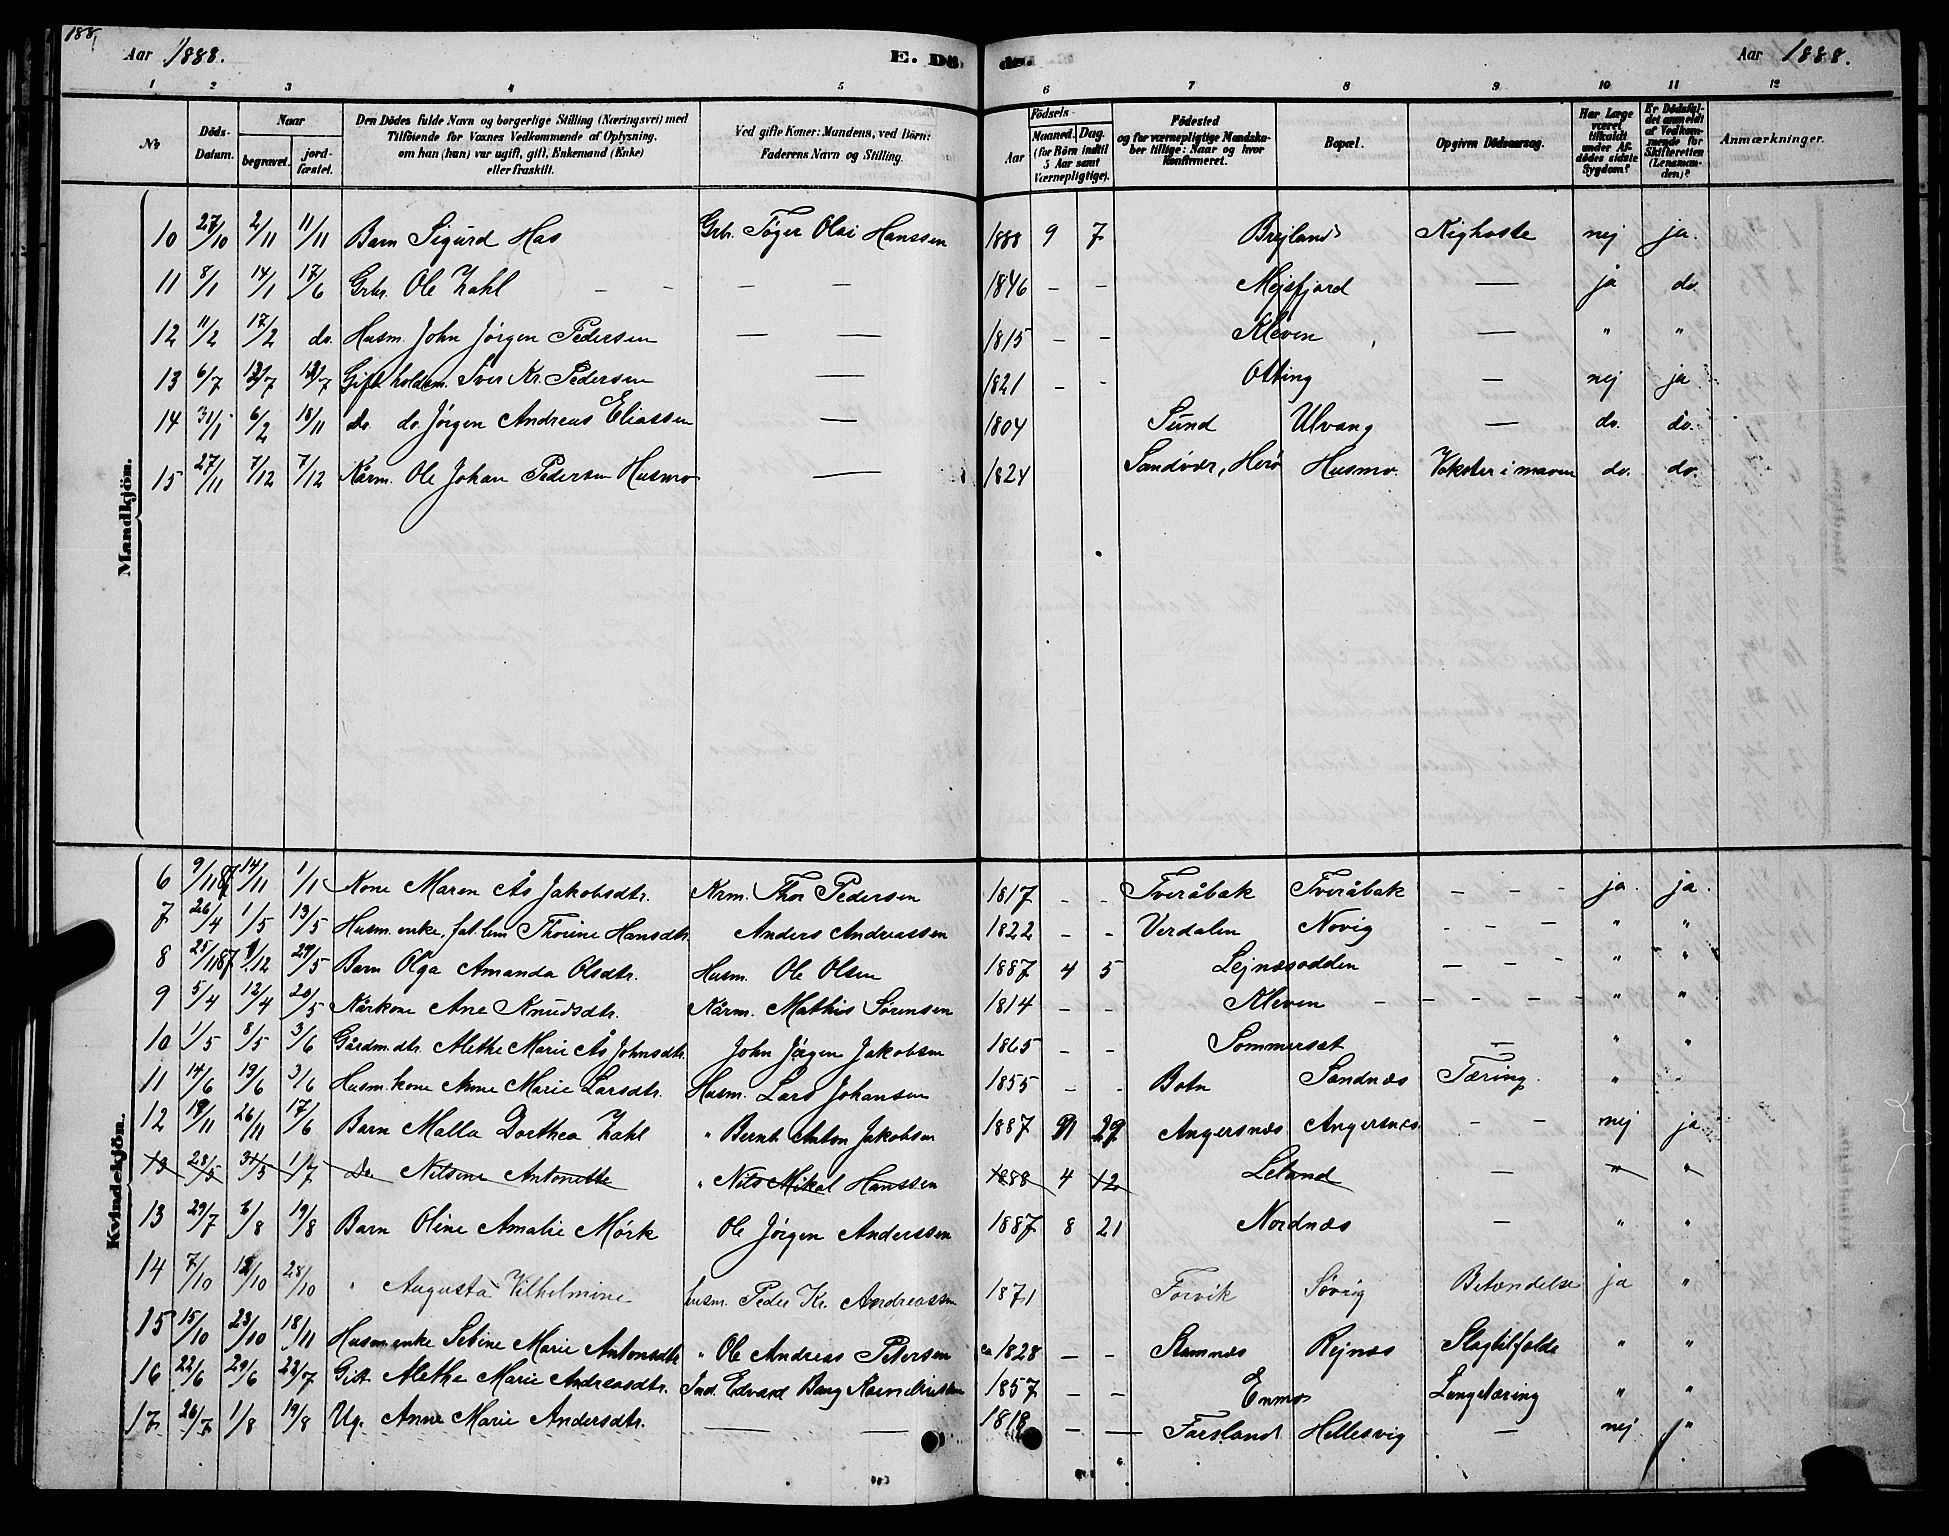 188
Aar 1888. E. Dö- de. Aar 1888.
1 2 3 4 5 6 7 8 9 10 11 12
No
Döds-Datum.
Naar
begravet.
jord-fæstet.
Den Dödes fulde Navn og borgerlige Stilling (Næringsvei) med
Tilföiende for Voxnes Vedkommende af Oplysning,
om han (hun) var ugift, gift, Enkemand (Enke)
eller fraskilt.
Ved gifte Koner: Mandens, ved Börn:
Faderens Navn og Stilling.
Födsels-
Aar
Maaned. Dag.
(for Börn indtil
5 Aar samt
Værnepligtige).
Födested
og for værnepligtige Mandska-
ber tillige: Naar og hvor
Konfirmeret.
Bopæl.
Opgiven Dödsaarsag.
Har Læge
været
tilkaldt
under Af-
dödes sidste
Sygdom?
Er Dödsfal-
det anmeldt
af Vedkom-
mende for
Skifteretten
(Lensman-
den)?
Anmærkninger.
Mandkjön.
10 27/10 2/11 11/11 Barn Sigurd Has Grb. Tøger Olai Hanssen 1888 9 7 Brejland Kighoste nej ja.
11 8/1 14/1 17/6 Grbr. Ole Zahl - - - - 1846 - - Mejsfjord — ja do.
12 11/2 17/2 do. Husm. John Jørgen Pedersen — — 1815 - - Kleven — " "
13 6/7 12/7 12/7 Gift holdsm. Iver Kr. Pedersen — 1821 - - Olting — nej ja
14 31/1 6/2 18/11 do. do. Jørgen Andreas Eliassen — 1804 Sund Ulvang — do. do.
15 27/11 7/12 7/12 Kårm. Ole Johan Pedersen Husmo — 1824 Sandvær, Herø Husmo. Vekster i maven do. do.
Kvindekjön.
6 9/11 87 14/11 1/1 Kone Maren Ås Jakobsdtr. Krm. Thor Pedersen 1817 - - Tveråbak Tveråbak - - - ja. ja.
7 26/4 1/5 13/5 Husm. enke, fat. lem Thorine Hansdtr. Anders Andreassen 1822 - - Verdalen Novig - - - " "
8 25/11 87 1/12 29/5 Barn Olga Amanda Olsdtr. Husm. Ole Olsen 1887 4 5 Lejnæsodden - - - " "
9 5/4 12/4 20/5 Kårkone Ane Knudsdtr. Kårm. Mathis Sørensen 1814 - - Kleven - - - - " "
10 1/5 8/5 3/6 Gårdm. dtr. Alethe Marie Ås Johnsdtr. John Jørgen Jakobsen 1865 - - Sommerset — " "
11 14/6 19/6 3/6 Husm. kone Anne Marie Larsdtr. Husm. Lars Johansen 1855 - - Botn Sandnæs Tæring. " "
12 19/11 26/11 17/6 Barn Malla Dorthea Zahl " Bernt Anton Jakobsen 1887 29 Angersnæs Angersnæs - - nej ja
13 28/5 31/5 1/7 Do Nilsine Antonette " Nils Mikal Hanssen 1888 4 12 Leland — " "
13 29/7 6/8 19/8 Barn Oline Amalie Mørk Ole Jørgen Anderssen 1887 8 21 Nordnæs — " "
14 7/10 12/10 28/10 " Augusta Vilhelmine husm. Peder Kr. Andreassen 1871 Forvik Søvig Betændelse ja "
15 15/10 23/10 18/11 Husm enke Sebine Marie Antonsdtr " Ole Andreas Petersen ca 1828 - - Stamnæs Rejnæs Slagtilfælde " "
16 22/6 29/6 22/7 Gift Alethe Marie Andreasdtr. Ind. Edvard Bang 1857 - - Enmo Lungetæring " "
17 26/7 1/8 19/8 Ug. Anne Marie Andersdtr. — — 1818 - — Forsland Hellesvig — nej j"